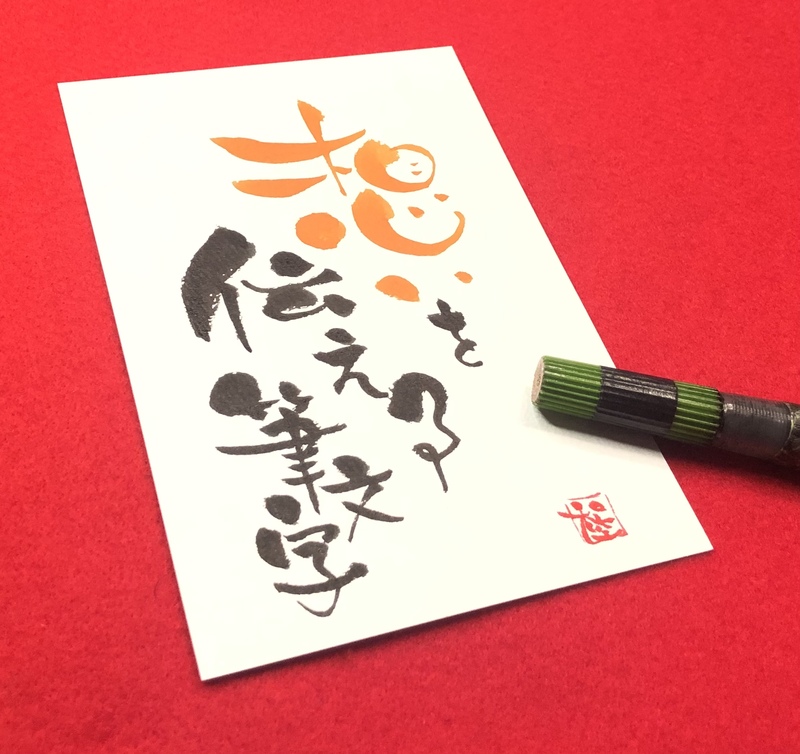 想いを
伝える
筆文字